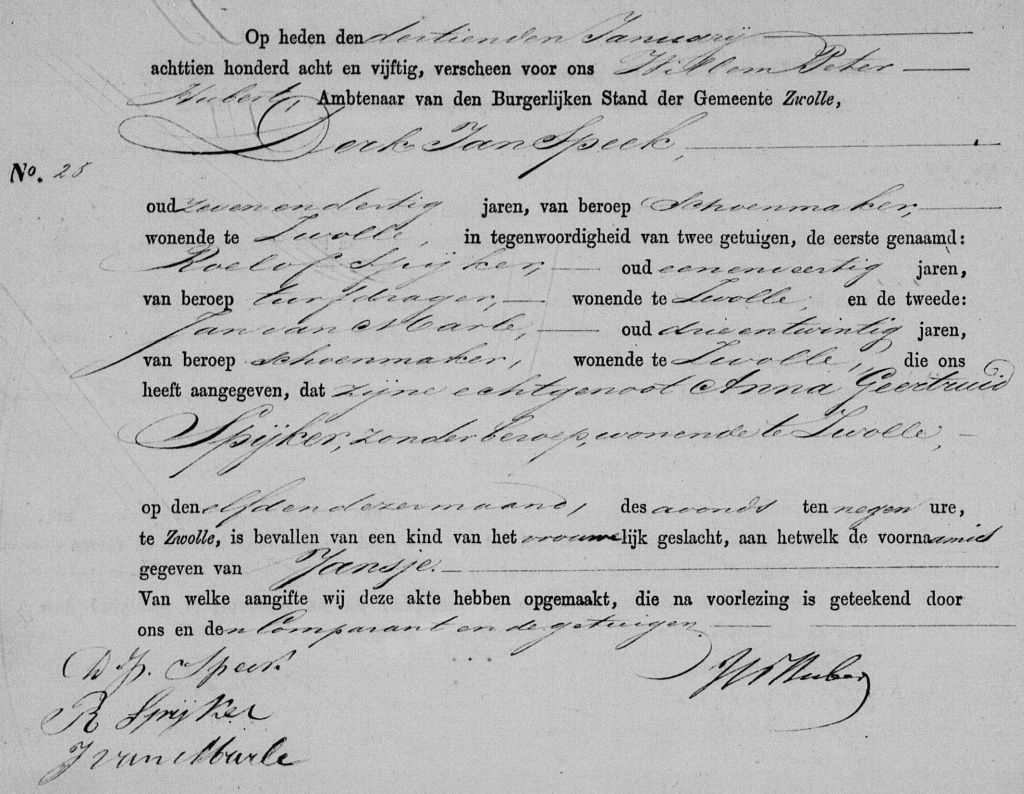 Op heden den dertienden Januarij
achttien honderd acht en vijftig, verscheen voor ons Willem Peter
Hubert, Ambtenaar van den Burgerlijken Stand der Gemeente Zwolle,
Derk Jan Speek,
No. 25
oud zeven en dertig jaren, van beroep Schoenmaker,
wonende te Zwolle, in tegenwoordigheid van twee getuigen, de eerste genaamd:
Roelof Spijker, oud eenenveertig jaren,
van beroep turfdrager, wonende te Zwolle, en de tweede:
Jan van Marle, oud drieentwintig jaren,
van beroep schoenmaker, wonende te Zwolle, die ons
heeft aangegeven, dat zijne echtgenoot Anna Geertruid
Spijker, zonder beroep, wonende te Zwolle,
op den elfden dezer maand, des avonds ten negen ure,
te Zwolle, is bevallen van een kind van het vrouwelijk geslacht, aan hetwelk de voornaam is
gegeven van Jansje.
Van welke aangifte wij deze akte hebben opgemaakt, die na voorlezing is geteekend door
ons en den Comparant en de getuigen
D. J. Speek
R Spijker
J van Marle